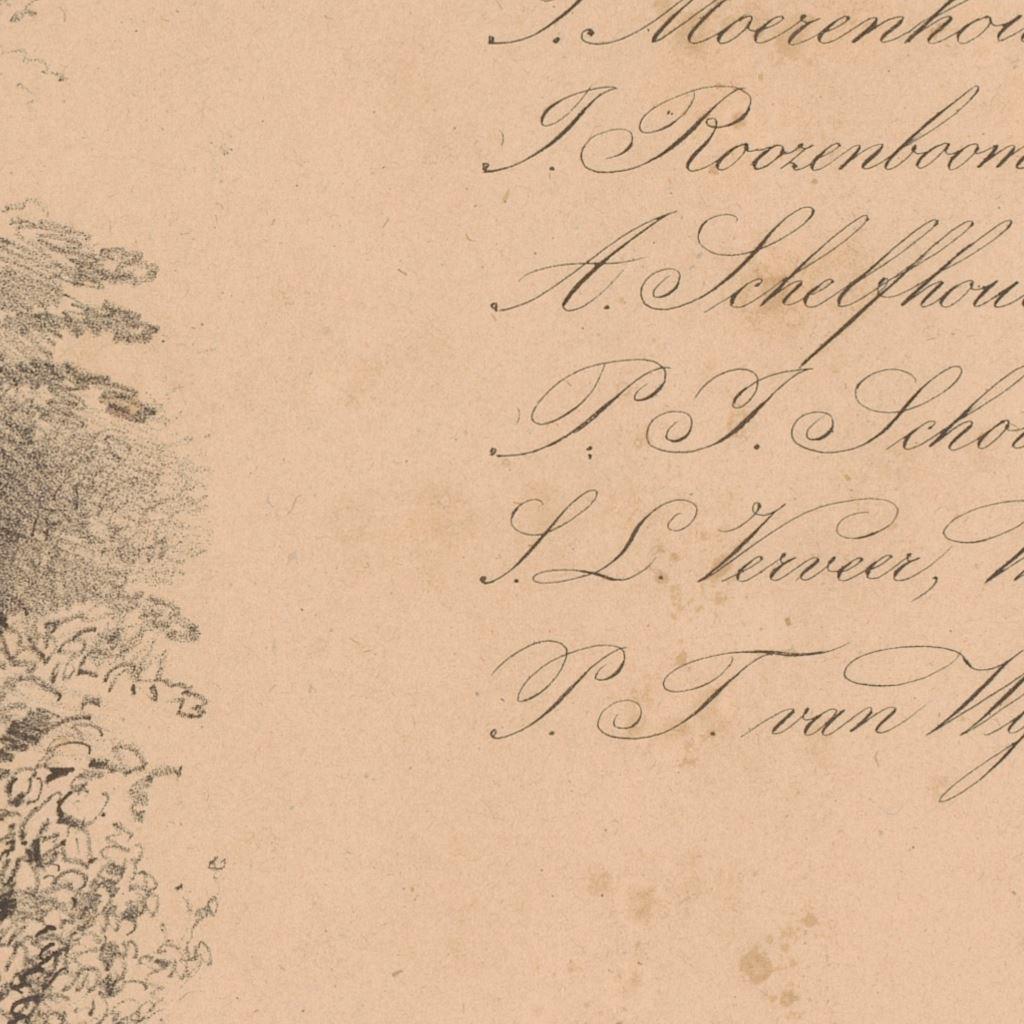 J. Moerenhou
J. Roozenboom
A. Schelfhout
P. J. Schou
S. L. Verveer,
P. T. van Wy